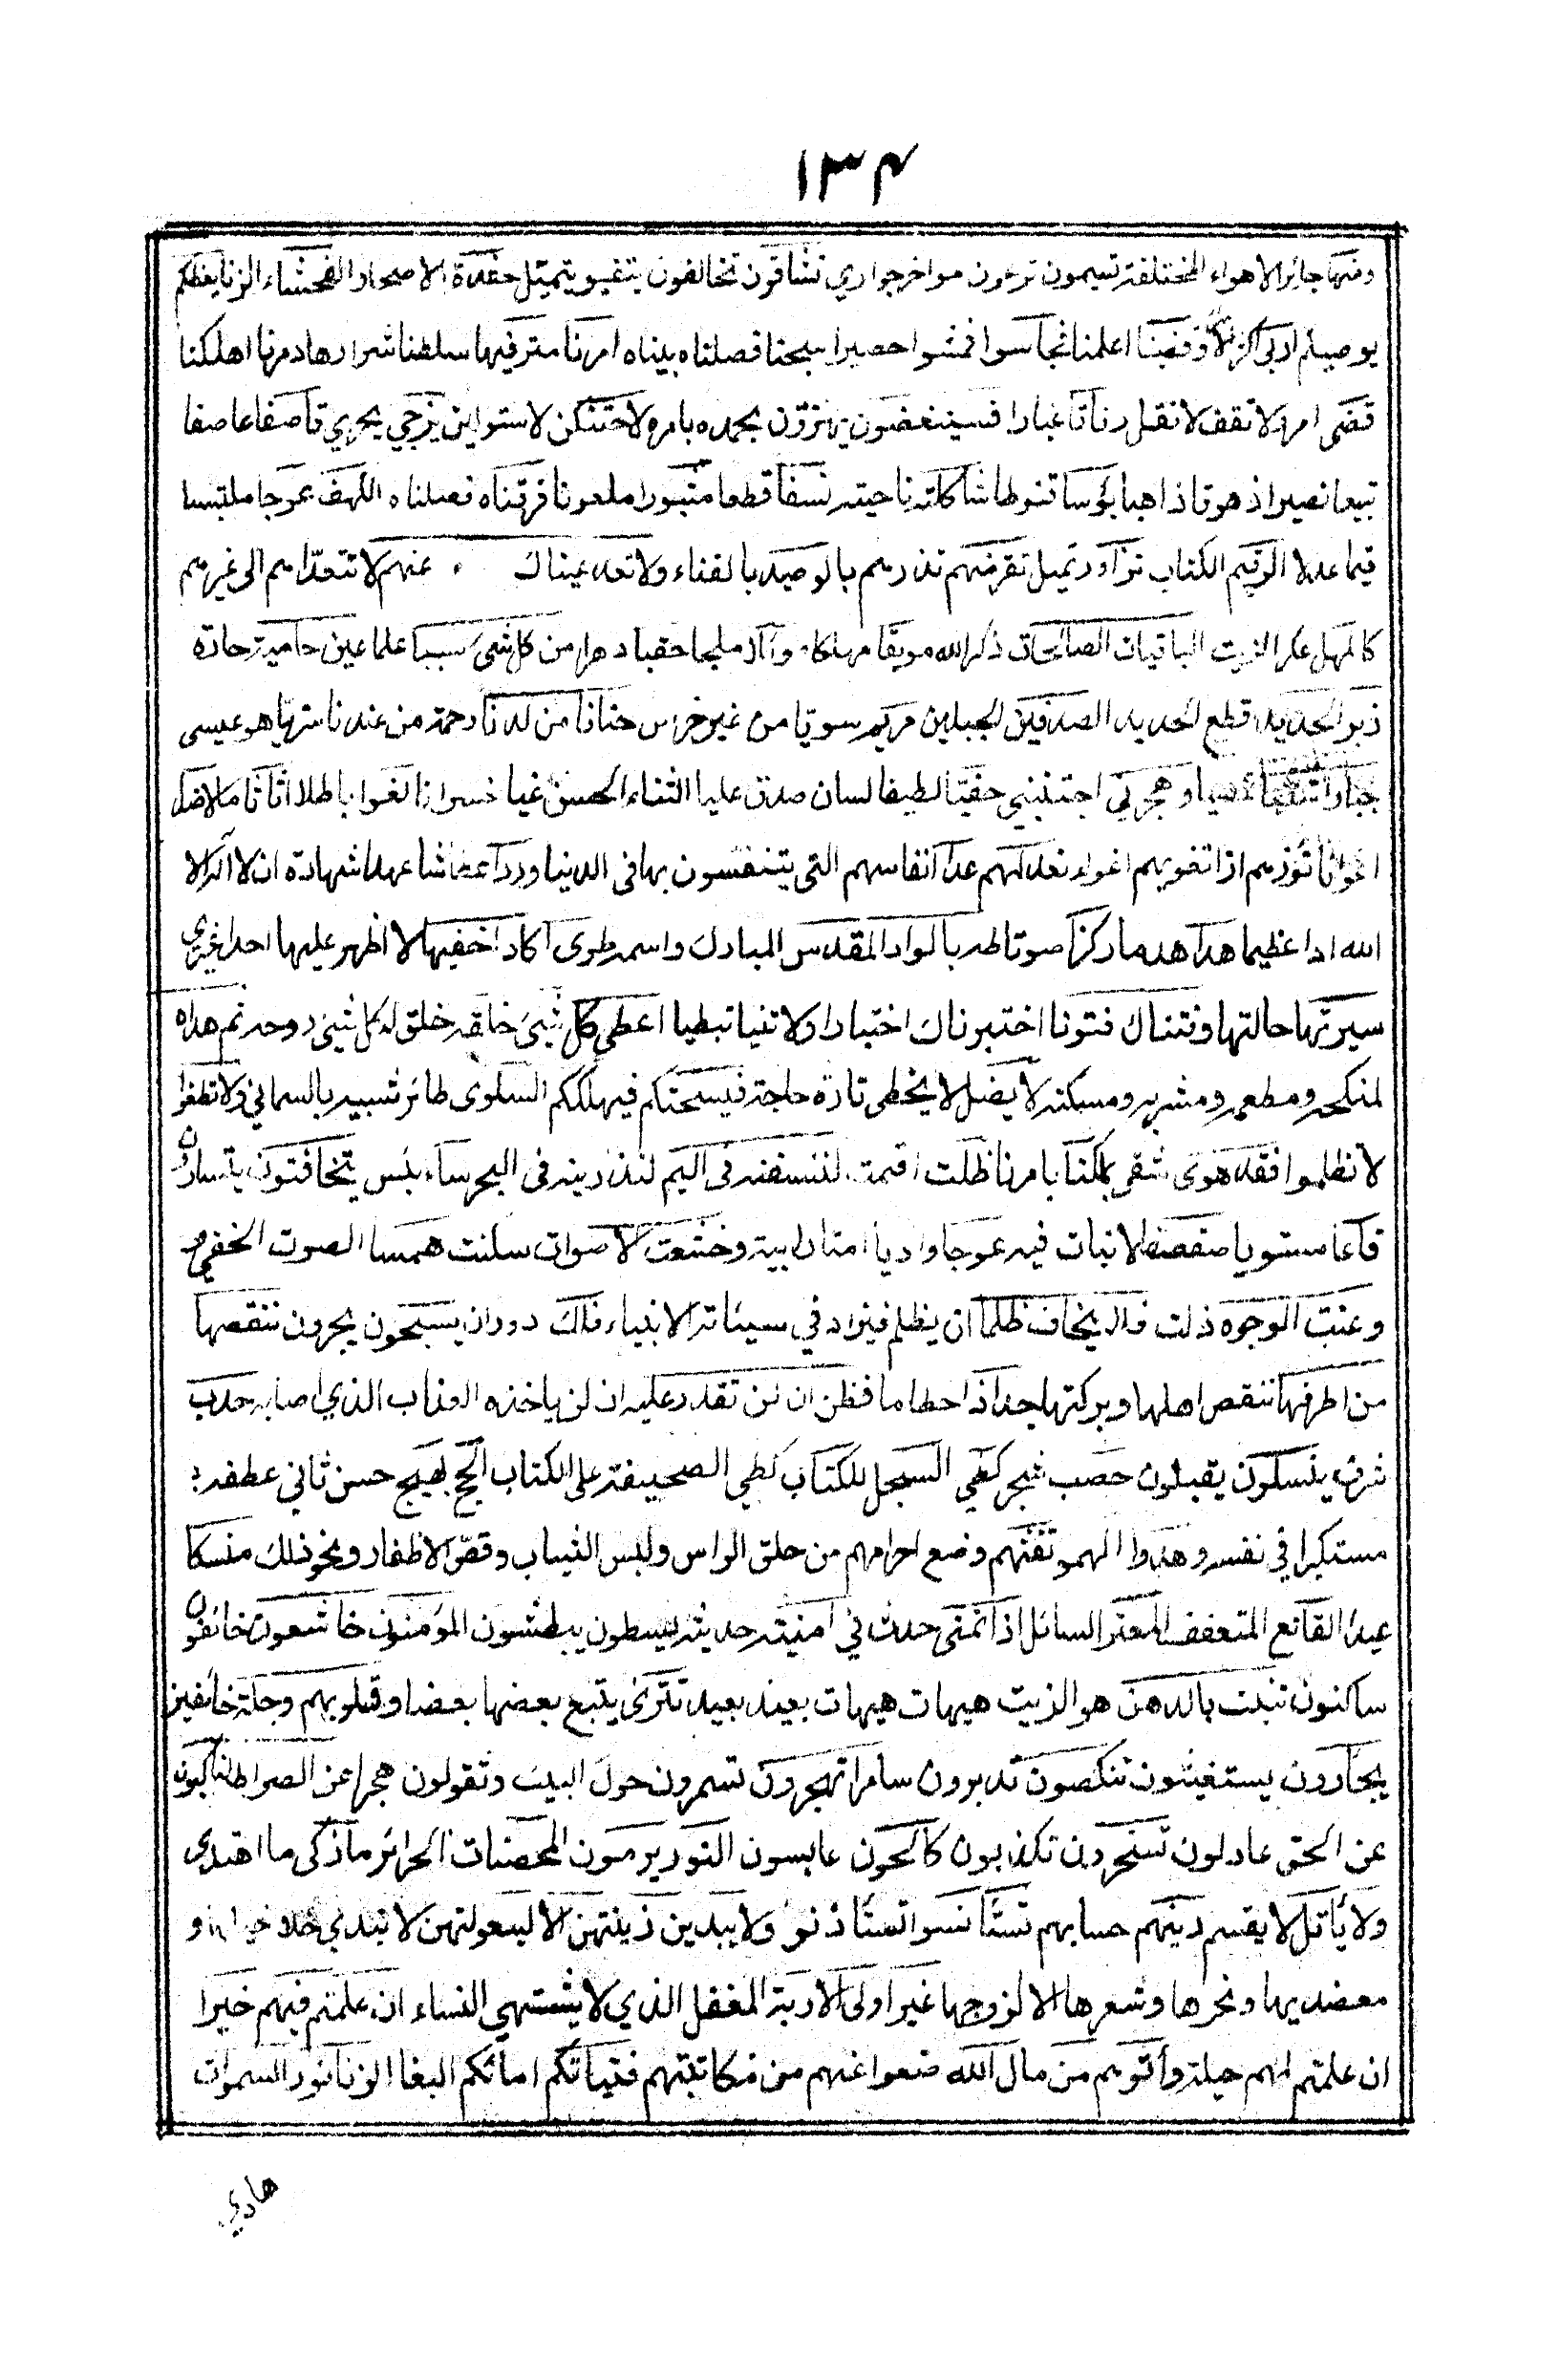 ١٣۴
ومنها جائر الاهواء المختلفة تسيمون ترعون مواخر جواري تشاقون تخالفون يتفيو يتميّل حفدة الاصهار الفحشاء الزنا يعظكم
يوصيكم اربى اكثر وقضينا اعلمنا فجاسوا فمشوا حصيرا سجنا فصلناه بيناه امرنا مترفيها سلطنا شرارها دمرنا اهلكنا
قضى امر ولا تقف لا تقل رفاتا غبارا فسينغضون يهزّون بحمده بامره لاحتنكن لاستولين يزجي يجري قاصفا عاصفا
تبيعا نصيرا زهوقا ذاهبا يؤسا قنوطا شاكلته ناحيته كسفا قطعا مثبورا ملعونا فرقناه فصلناه الكهف عوجا ملتبسا
قيما عدلا الرقيم الكتاب تزاور تميل تقرضهم تذرهم بالوصيد بالفناء ولا تعد عيناك عنهم لا تتعدّاهم الى غيرهم
كالمهل عكر الزيت الباقيات الصالحات ذكر الله موبقا مهلكا موئلا ملجا حقبا دهرا من كل شئ سببا علما عين حامية حارة
زبر الحديد قطع الحديد الصدفين الجبلين مريم سويّا من غير خرس حنانا من لدنا رحمة من عندنا سريّا هو عيسى
جبارا شقيا عصيا واهجرني اجتنبني حفيّا لطيفا لسان صدق عليا الثناء الحسن غيا خسرانا لغوا باطلا اثاثا مالا ضدا
اعوانا تؤزهم ازا تغويهم اغواء نعد لهم عدا انفاسهم التي يتنفسون بها في الدنيا وردا عطاشا عهدا شهادة ان لا اله الا
الله ادا عظيما هدا هدما ركزا صوتا طه بالواد المقدس المبارك واسمه طوى اكاد اخفيها لا اظهر عليها احدا غيري
سيرتها حالتها وفتناك فتونا اختبرناك اختبارا ولا تنيا تبطيا اعطى كل شيئ خلقه خلق لكل شيئ زوجه ثم هداه
لمنكحه ومطعمه ومشربه ومسكنه لا يضل لا يخطى تارة حاجة فيسحتكم فيهلككم السلوى طائر شبيه بالسماني ولا تطغوا
لا تظلموا فقد هوى شقي بملكنا بامرنا ظلت اقمت لننسفنه في اليم لنذرينه في البحر ساء بئس يتخافتون يتسارون
قاعا مستويا صفصفا لا نبات فيه عوجا واديا امتا رابية وخشعت الاصوات سكنت همسا الصوت الخفي
وعنت الوجوه ذلت فلا يخاف ظلما ان يظلم فيزاد في سيئاته الانبياء فلك دوران يسبحون يجرون ننقصها
من اطرافها ننقص اهلها وبركتها جذاذا حطاما فظن ان لن نقدر عليه ان لن ياخذه العذاب الذي اصابه حدب
شرف ينسلون يقبلون حصب شجر كطي السجل للكتاب كطي الصحيفة على الكتاب الحج بهيج حسن ثاني عطفه
مستكبرا في نفسه وهدوا الهموا تفثهم وضع احرامهم من حلق الراس ولبس الثياب وقصّ الاظفار ونحو ذلك منسكا
عيدا القانع المتعفف المعتر السائل اذا تمنى حدث في امنيته حديثه يسطون يبطشون المؤمنون خاشعون خائفون
ساكنون تنبت بالدهن هو الزيت هيهات هيهات بعيد بعيد تترى يتبع بعضها بعضا وقلوبهم وجلة خائفين
يجأرون يستغيثون تنكصون تدبرون سامرا تهجرون تسمرون حول البيت وتقولون هجرا عن الصراط لناكبون
عن الحق عادلون تسحرون تكذبون كالحون عابسون النور يرمون المحصنات الحرائر ما زكى ما اهتدى
ولا يأتل لا يقسم دينهم حسابهم تستانسوا تستاذنوا ولا يبدين زينتهن الا لبعولتهن لا تبدي خلاخيلها و
معضديها ونحرها وشعرها الا لزوجها غير اولى الاربة المغفل الذي لا يشتهي النساء ان علمتم فيهم خيرا
ان علمتم لهم حيلة وأتوهم من مال الله ضعوا عنهم من مكاتبتهم فتياتكم امائكم البغا الزنا نور السموات
هادي